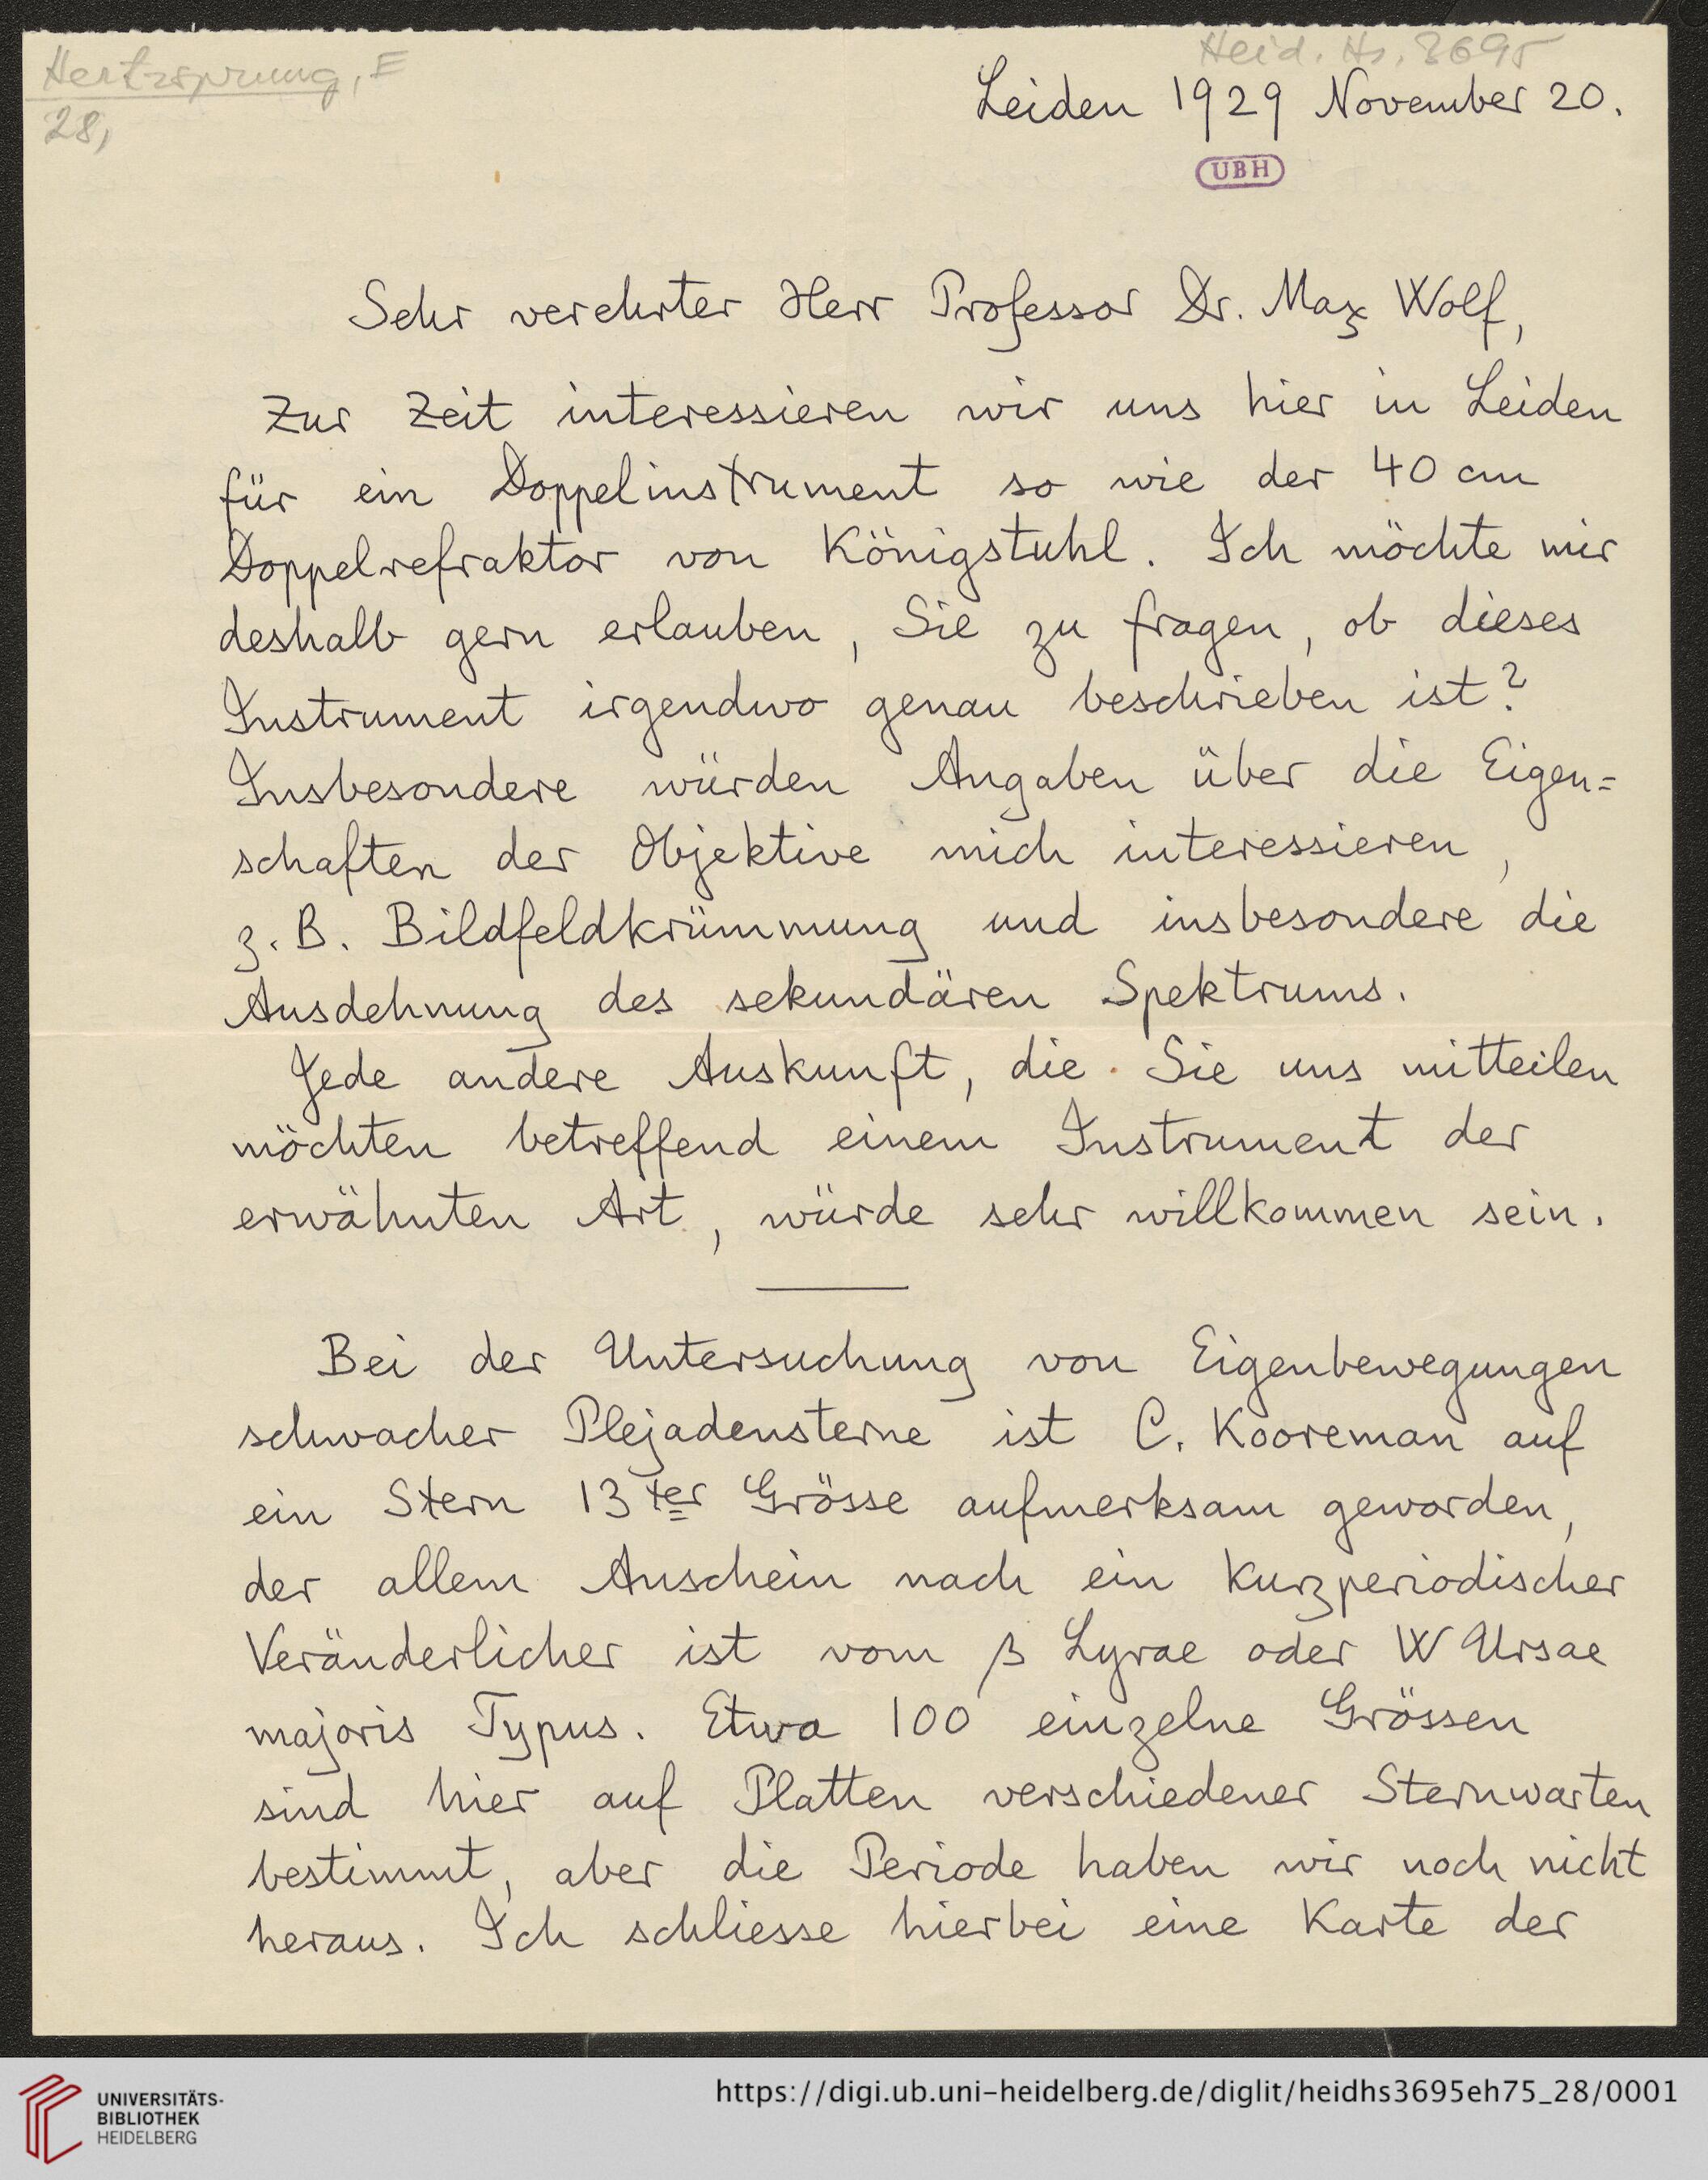 Hertzsprung, E
28,
Heid. Hs. 3695
Leiden 1929 November 20.
UBH
Sehr verehrter Herr Professor Dr. Max Wolf,
Zur Zeit interessieren wir uns hier in Leiden
für ein Doppelinstrument so wie der 40 cm
Doppelrefraktor von Königstuhl. Ich möchte mir
deshalb gern erlauben, Sie zu fragen, ob dieses
Instrument irgendwo genau beschrieben ist?
Insbesondere würden Angaben über die Eigen=
schaften der Objektive mich interessieren,
z. B. Bildfeldkrümmung und insbesondere die
Ausdehnung des sekundären Spektrums.
Jede andere Auskunft, die Sie uns mitteilen
möchten betreffend einem Instrument der
erwähnten Art, würde sehr willkommen sein.
Bei der Untersuchung von Eigenbewegungen
schwacher Plejadensterne ist C. Kooreman auf
ein Stern 13ter Grösse aufmerksam geworden,
der allem Anschein nach ein kurzperiodischer
Veränderlicher ist vom β Lyrae oder W Ursae
majoris Typus. Etwa 100 einzelne Grössen
sind hier auf Platten verschiedener Sternwarten
bestimmt, aber die Periode haben wir noch nicht
heraus. Ich schliesse hierbei eine Karte der
UNIVERSITÄTS-
BIBLIOTHEK
HEIDELBERG
https://digi.ub.uni-heidelberg.de/diglit/heidhs3695eh75_28/0001